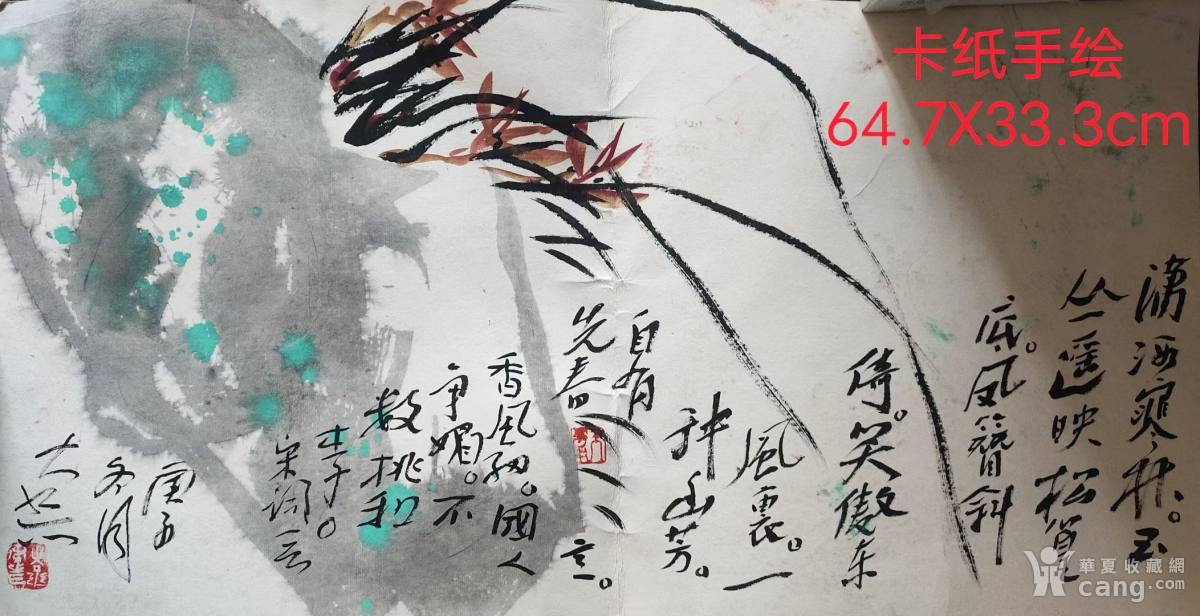 卡纸手绘
64.7X33.3cm
潇洒寒林。玉
丛遥映松篁
底。凤簪斜
倚。笑傲东
風裏。一
种幽芳。
自有
先春
意。
香風细。國人
争媚。不
数桃和
李。
宋词云
庚子
冬月
華夏收藏網
cang.com